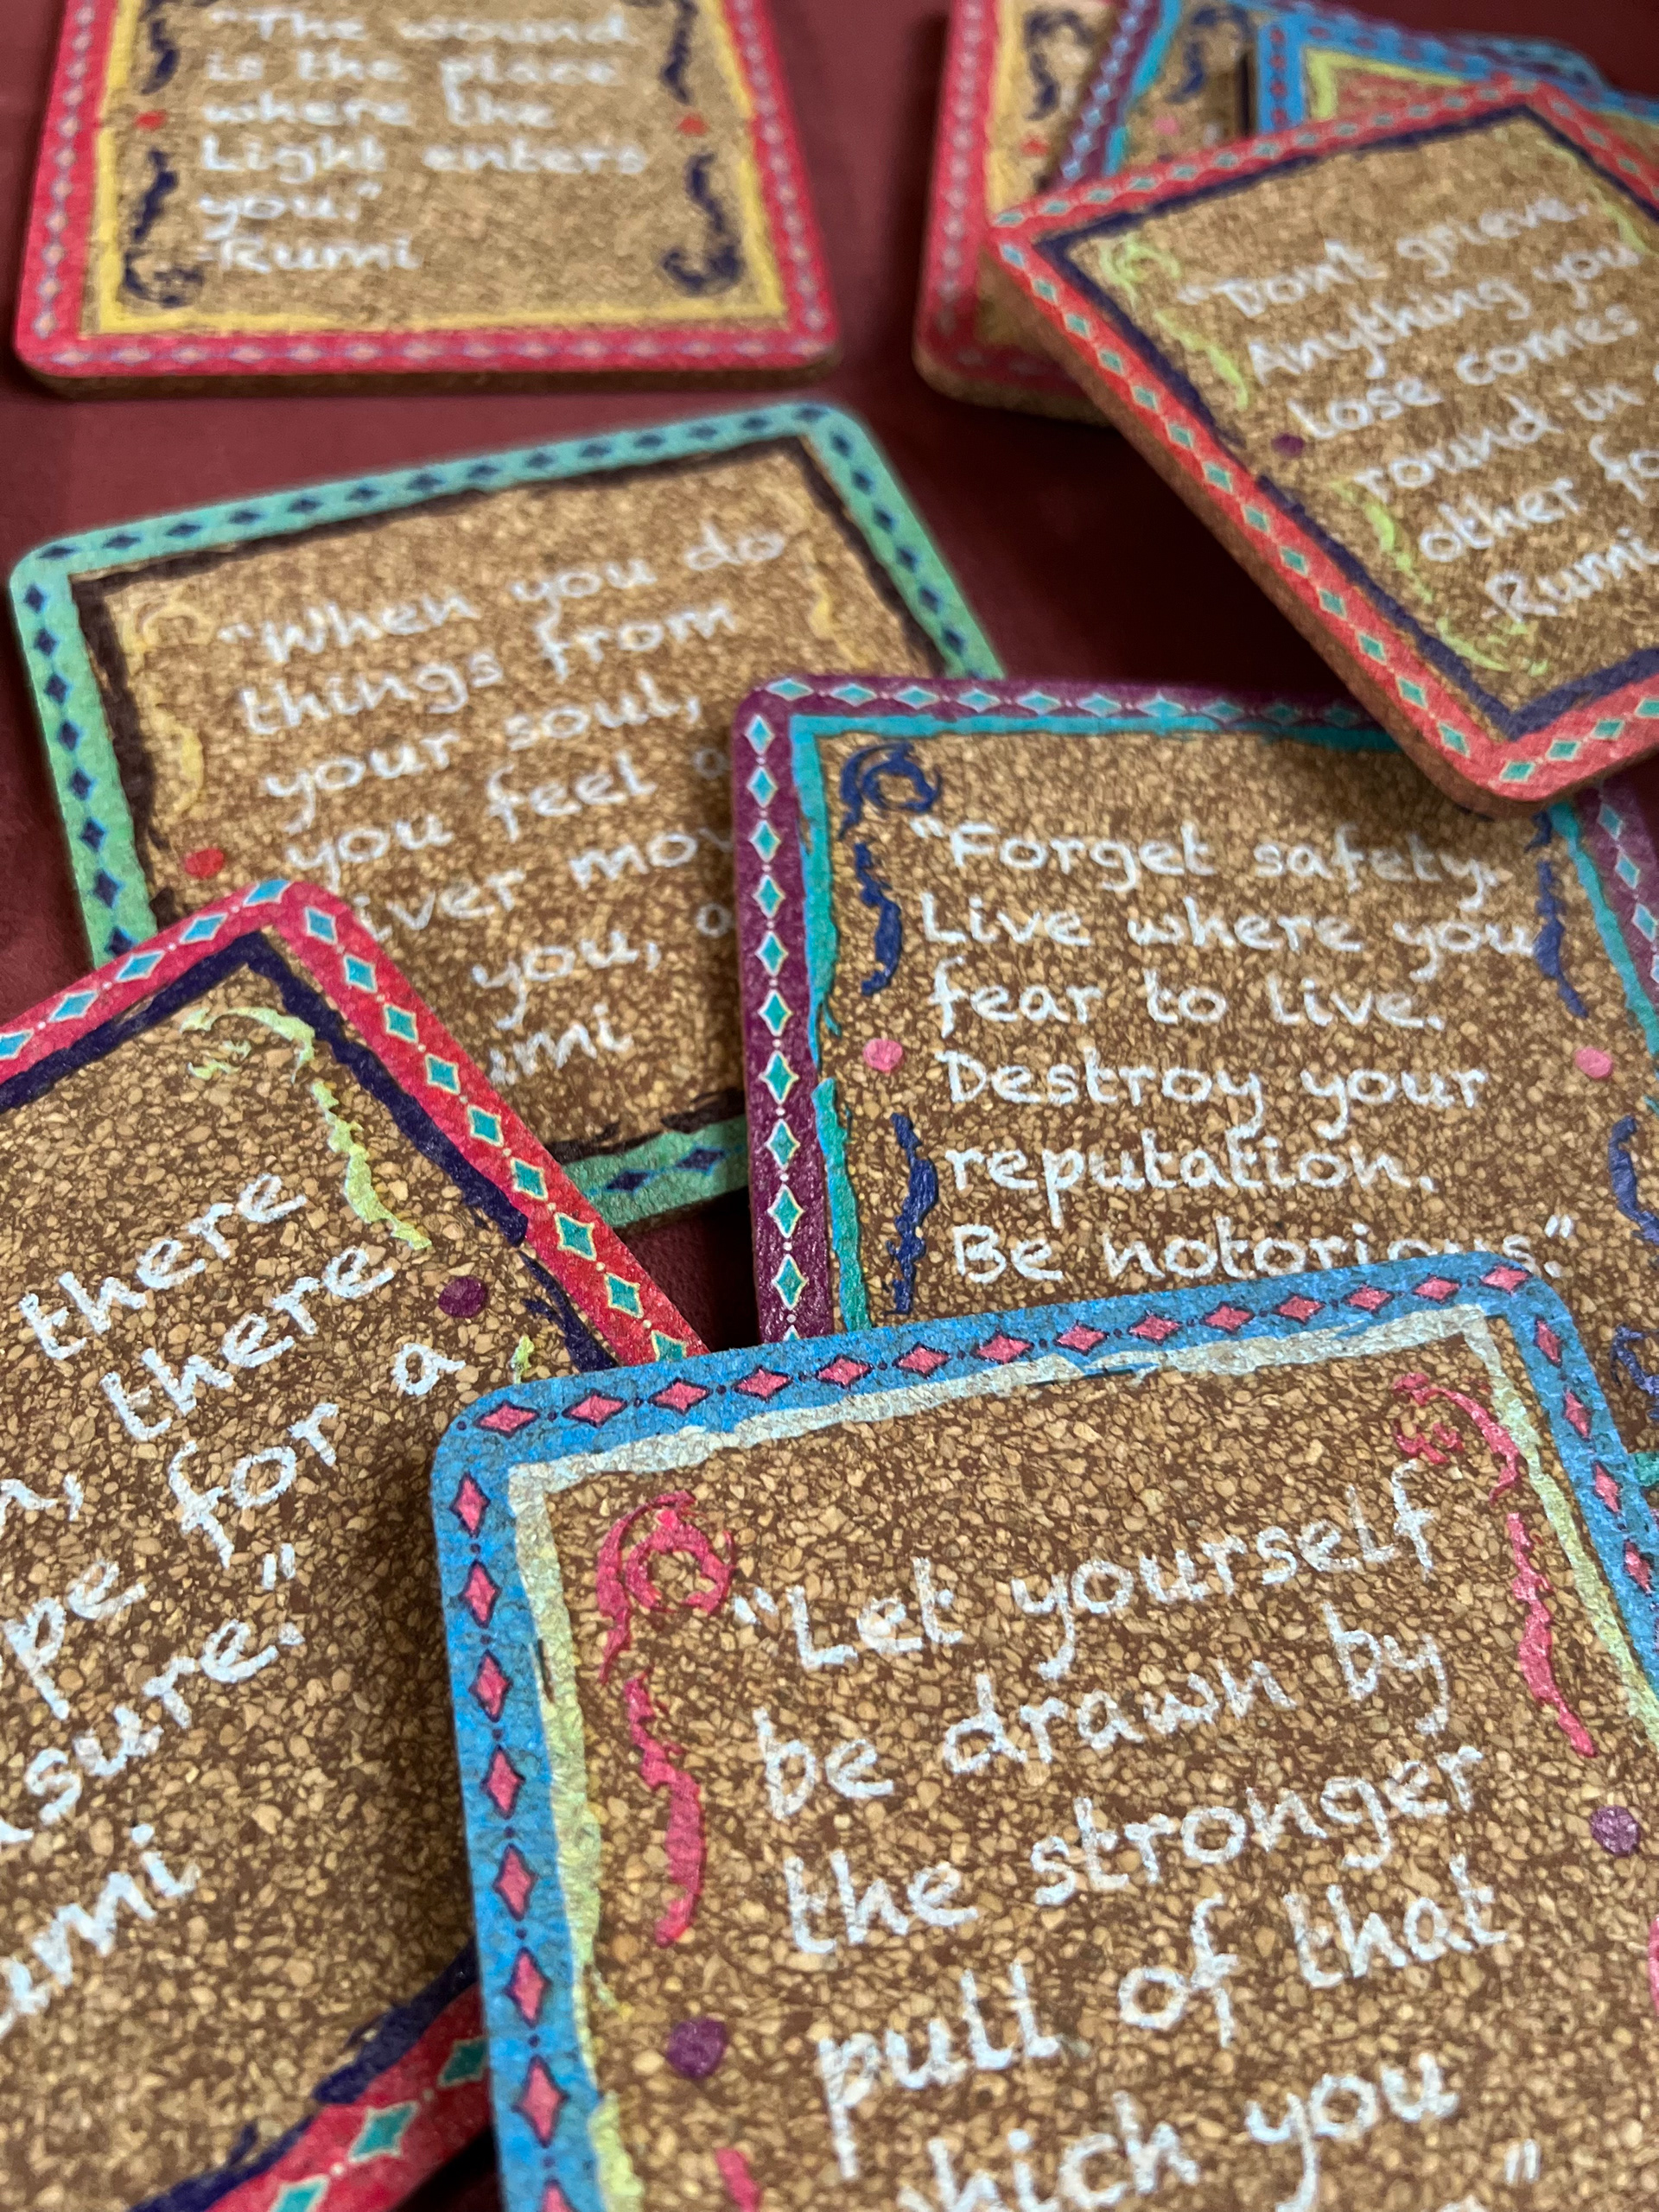 "The wound
is the place
where the
Light enters
you."
-Rumi
"Don't grieve.
Anything you
lose comes
round in
other fo
-Rumi
"When you do
things from
your soul,
you feel a
iver mov
you, a
umi
"Forget safety.
Live where you
fear to live.
Destroy your
reputation.
Be notorious."
there
there
for a
pe
sure."
umi
"Let yourself
be drawn by
the stronger
pull of that
hich you
"